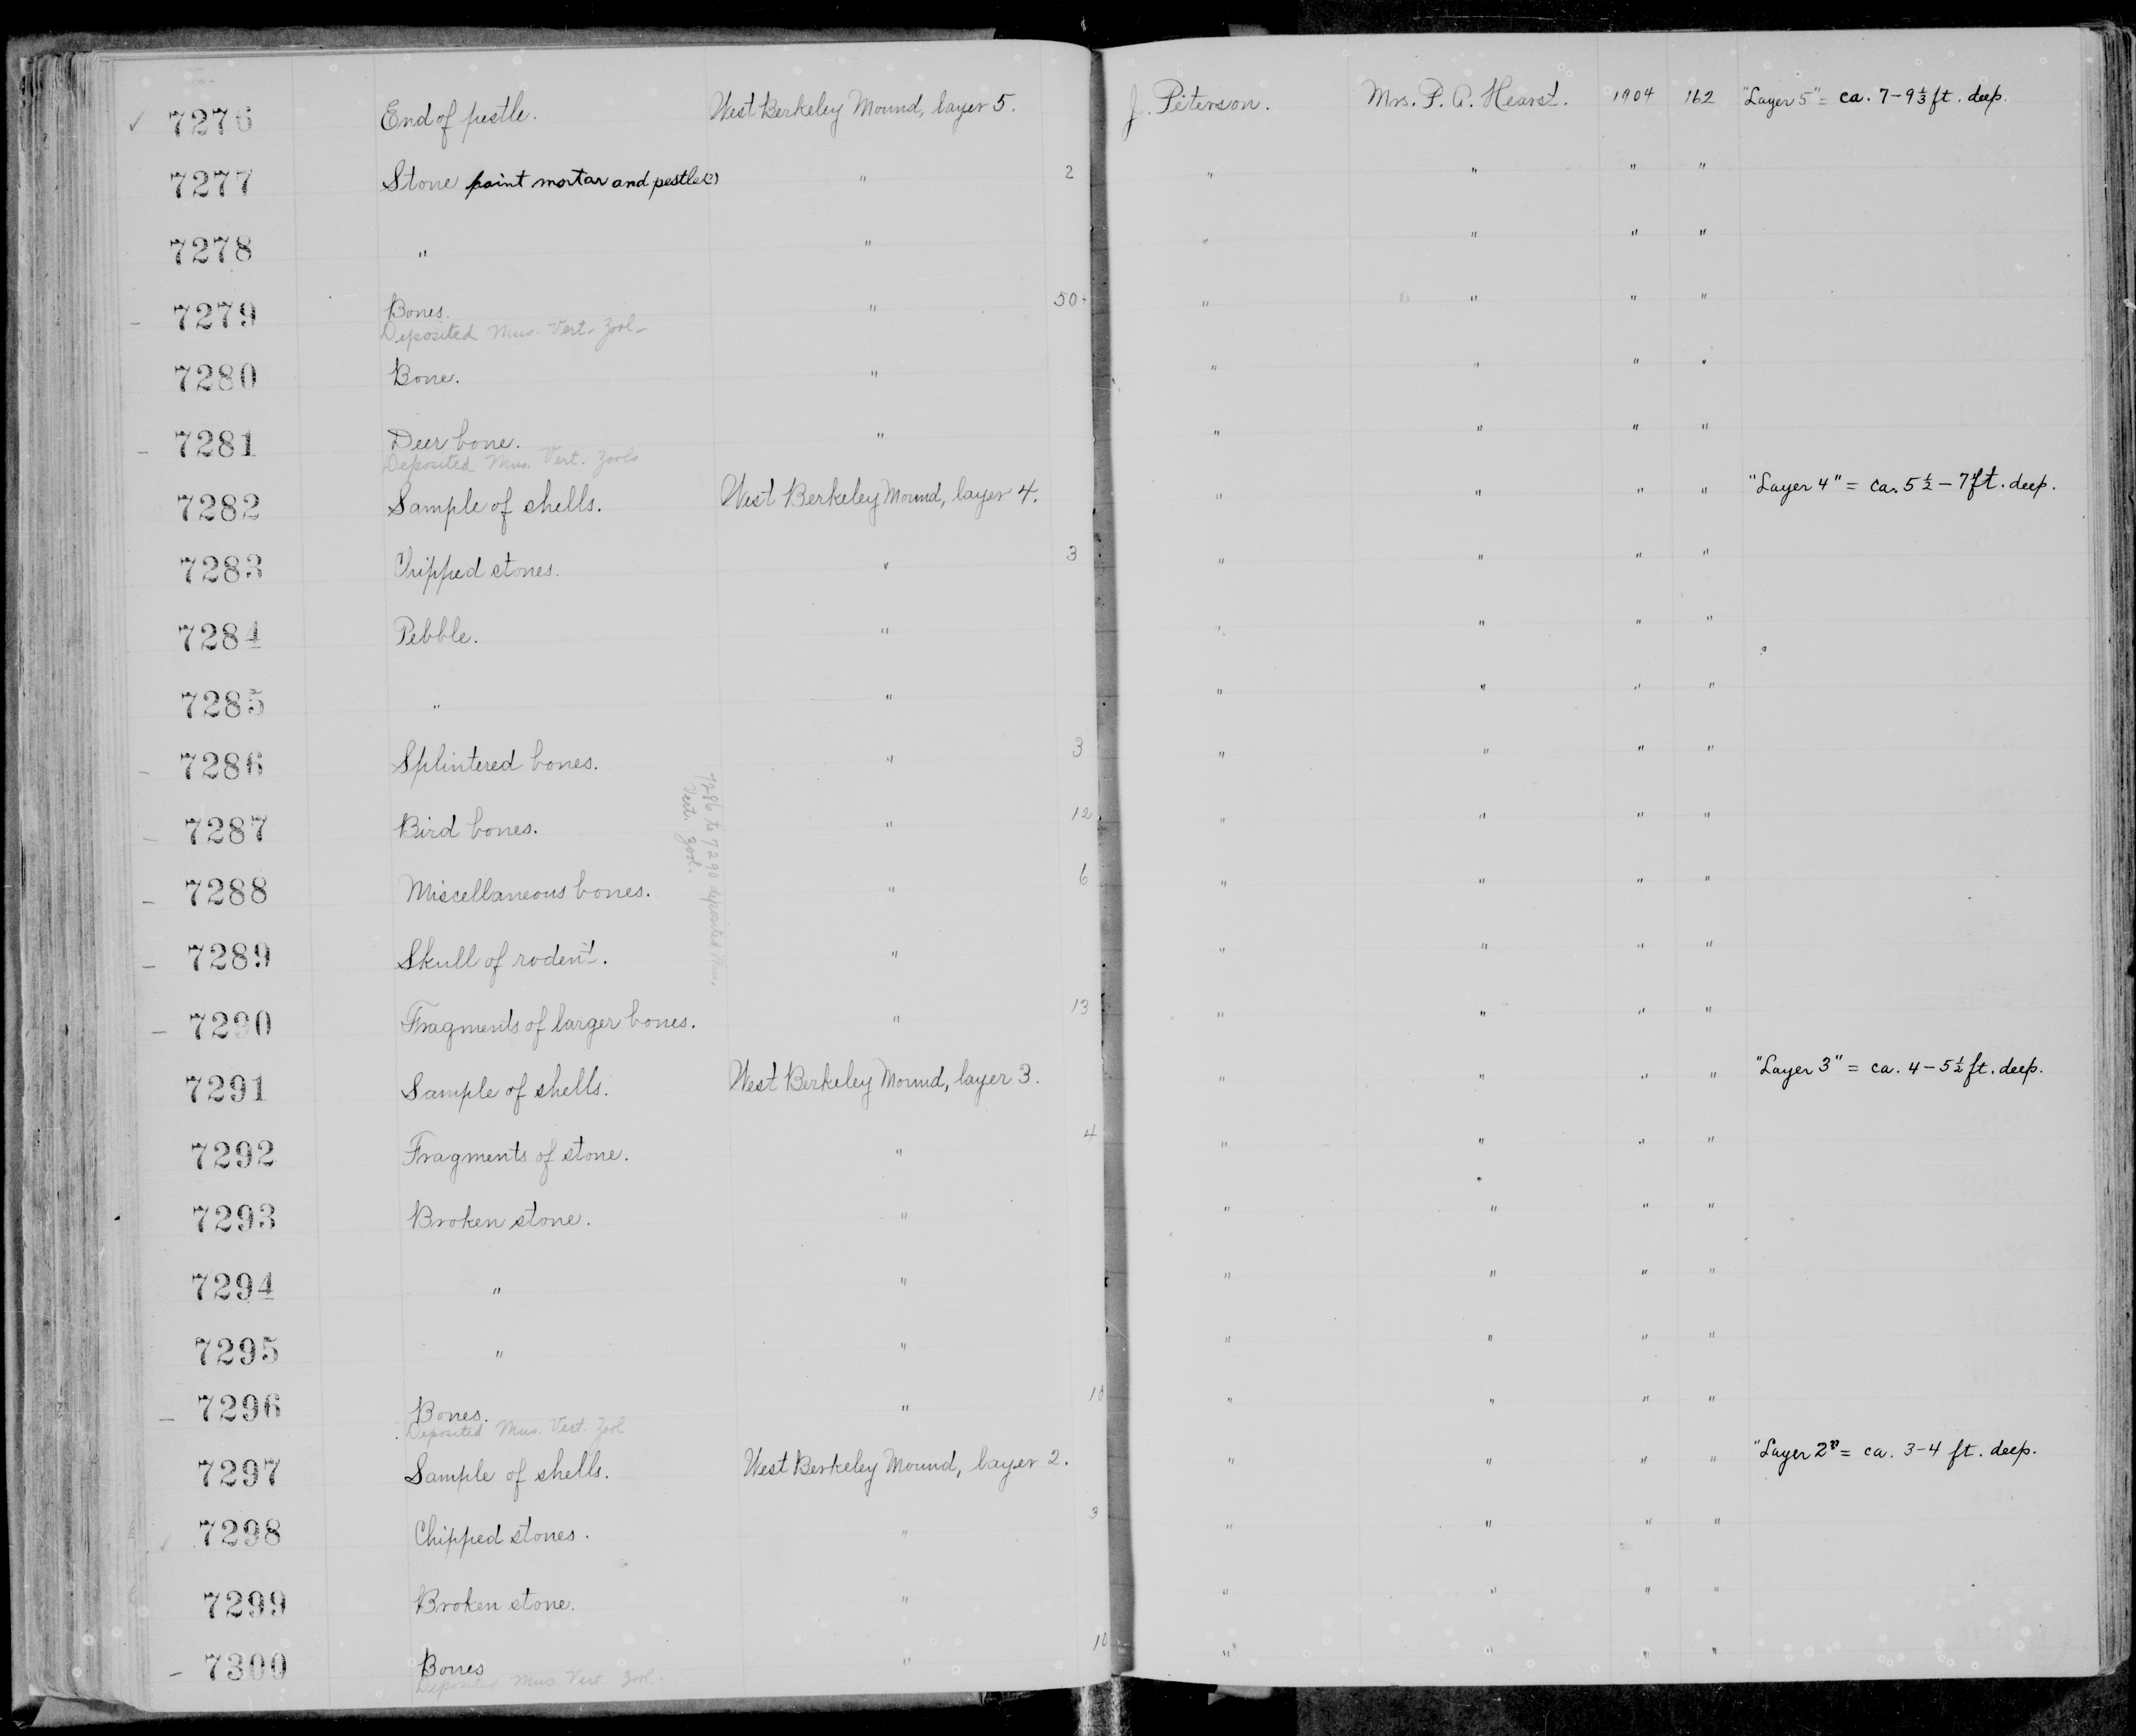 ✓ 7276 End of pestle. West Berkeley Mound, layer 5. J. Peterson. Mrs. P. A. Hearst. 1904 162 "Layer 5" = ca. 7-9⅓ ft. deep.
7277 Stone paint mortar and pestle(?) " 2 " " " "
7278 " " " " " "
– 7279 Bones. " 50+ " " " "
Deposited Mus. Vert. Zool.
7280 Bone. " " " " "
– 7281 Deer bone. " " " " "
Deposited Mus. Vert. Zool.
7282 Sample of shells. West Berkeley Mound, layer 4. " " " " "Layer 4" = ca. 5½ – 7 ft. deep.
7283 Chipped stones. " 3 " " " "
7284 Pebble. " " " " "
7285 " " " " " "
– 7286 Splintered bones. " 3 " " " "
– 7287 Bird bones. " 12 " " " "
– 7288 Miscellaneous bones. " 6 " " " "
– 7289 Skull of rodent. " " " " "
– 7290 Fragments of larger bones. " 13 " " " "
7286 to 7290 deposited Mus.
Vert. Zool.
7291 Sample of shells. West Berkeley Mound, layer 3. " " " " "Layer 3" = ca. 4 – 5½ ft. deep.
7292 Fragments of stone. " 4 " " " "
7293 Broken stone. " " " " "
7294 " " " " " "
7295 " " " " " "
– 7296 Bones. " 10 " " " "
Deposited Mus. Vert. Zool
7297 Sample of shells. West Berkeley Mound, layer 2. " " " " "Layer 2" = ca. 3-4 ft. deep.
✓ 7298 Chipped stones. " 3 " " " "
7299 Broken stone. " " " " "
– 7300 Bones " 10 " " " "
Deposited Mus. Vert. Zool.